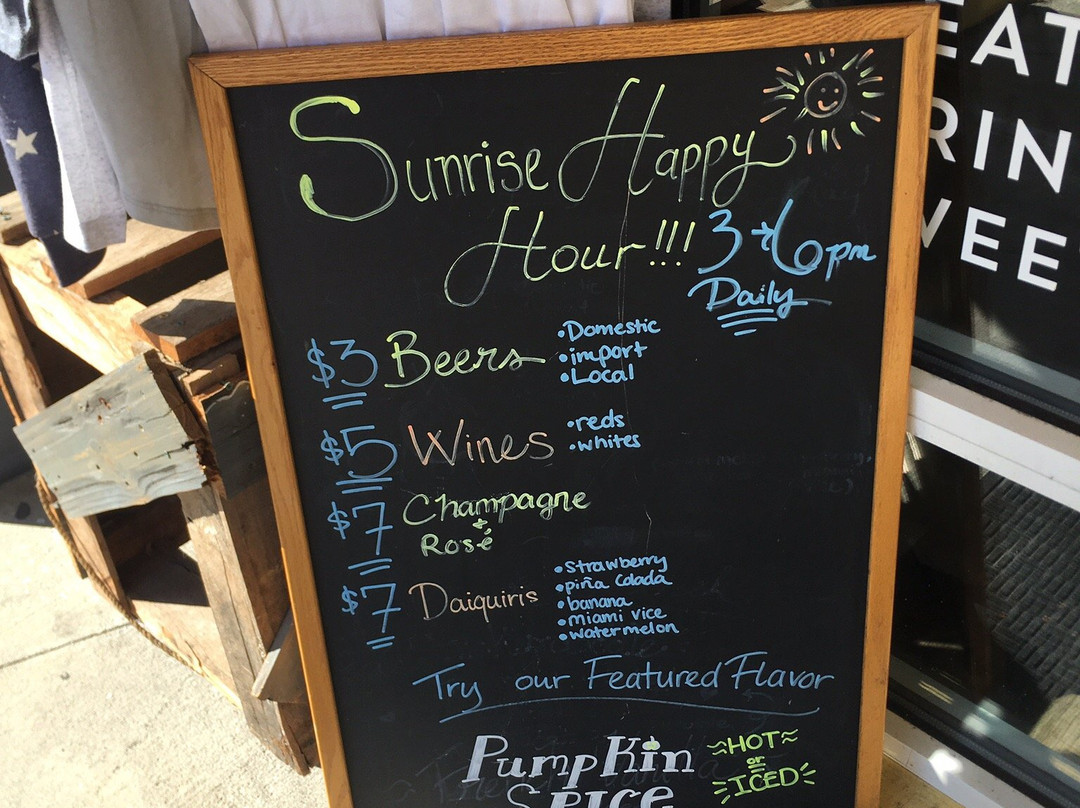 Sunrise Happy
Hour!!! 3-6pm
Daily
$3 Beers
•Domestic
•import
•Local
$5 Wines
•reds
•whites
$7 Champagne
+
Rosé
$7 Daiquiris
•Strawberry
•piña Colada
•banana
•miami vice
•watermelon
Try our Featured Flavor
PumpKin
SPICE
≈HOT≈
or
ICED
EAT
RIN
WEE